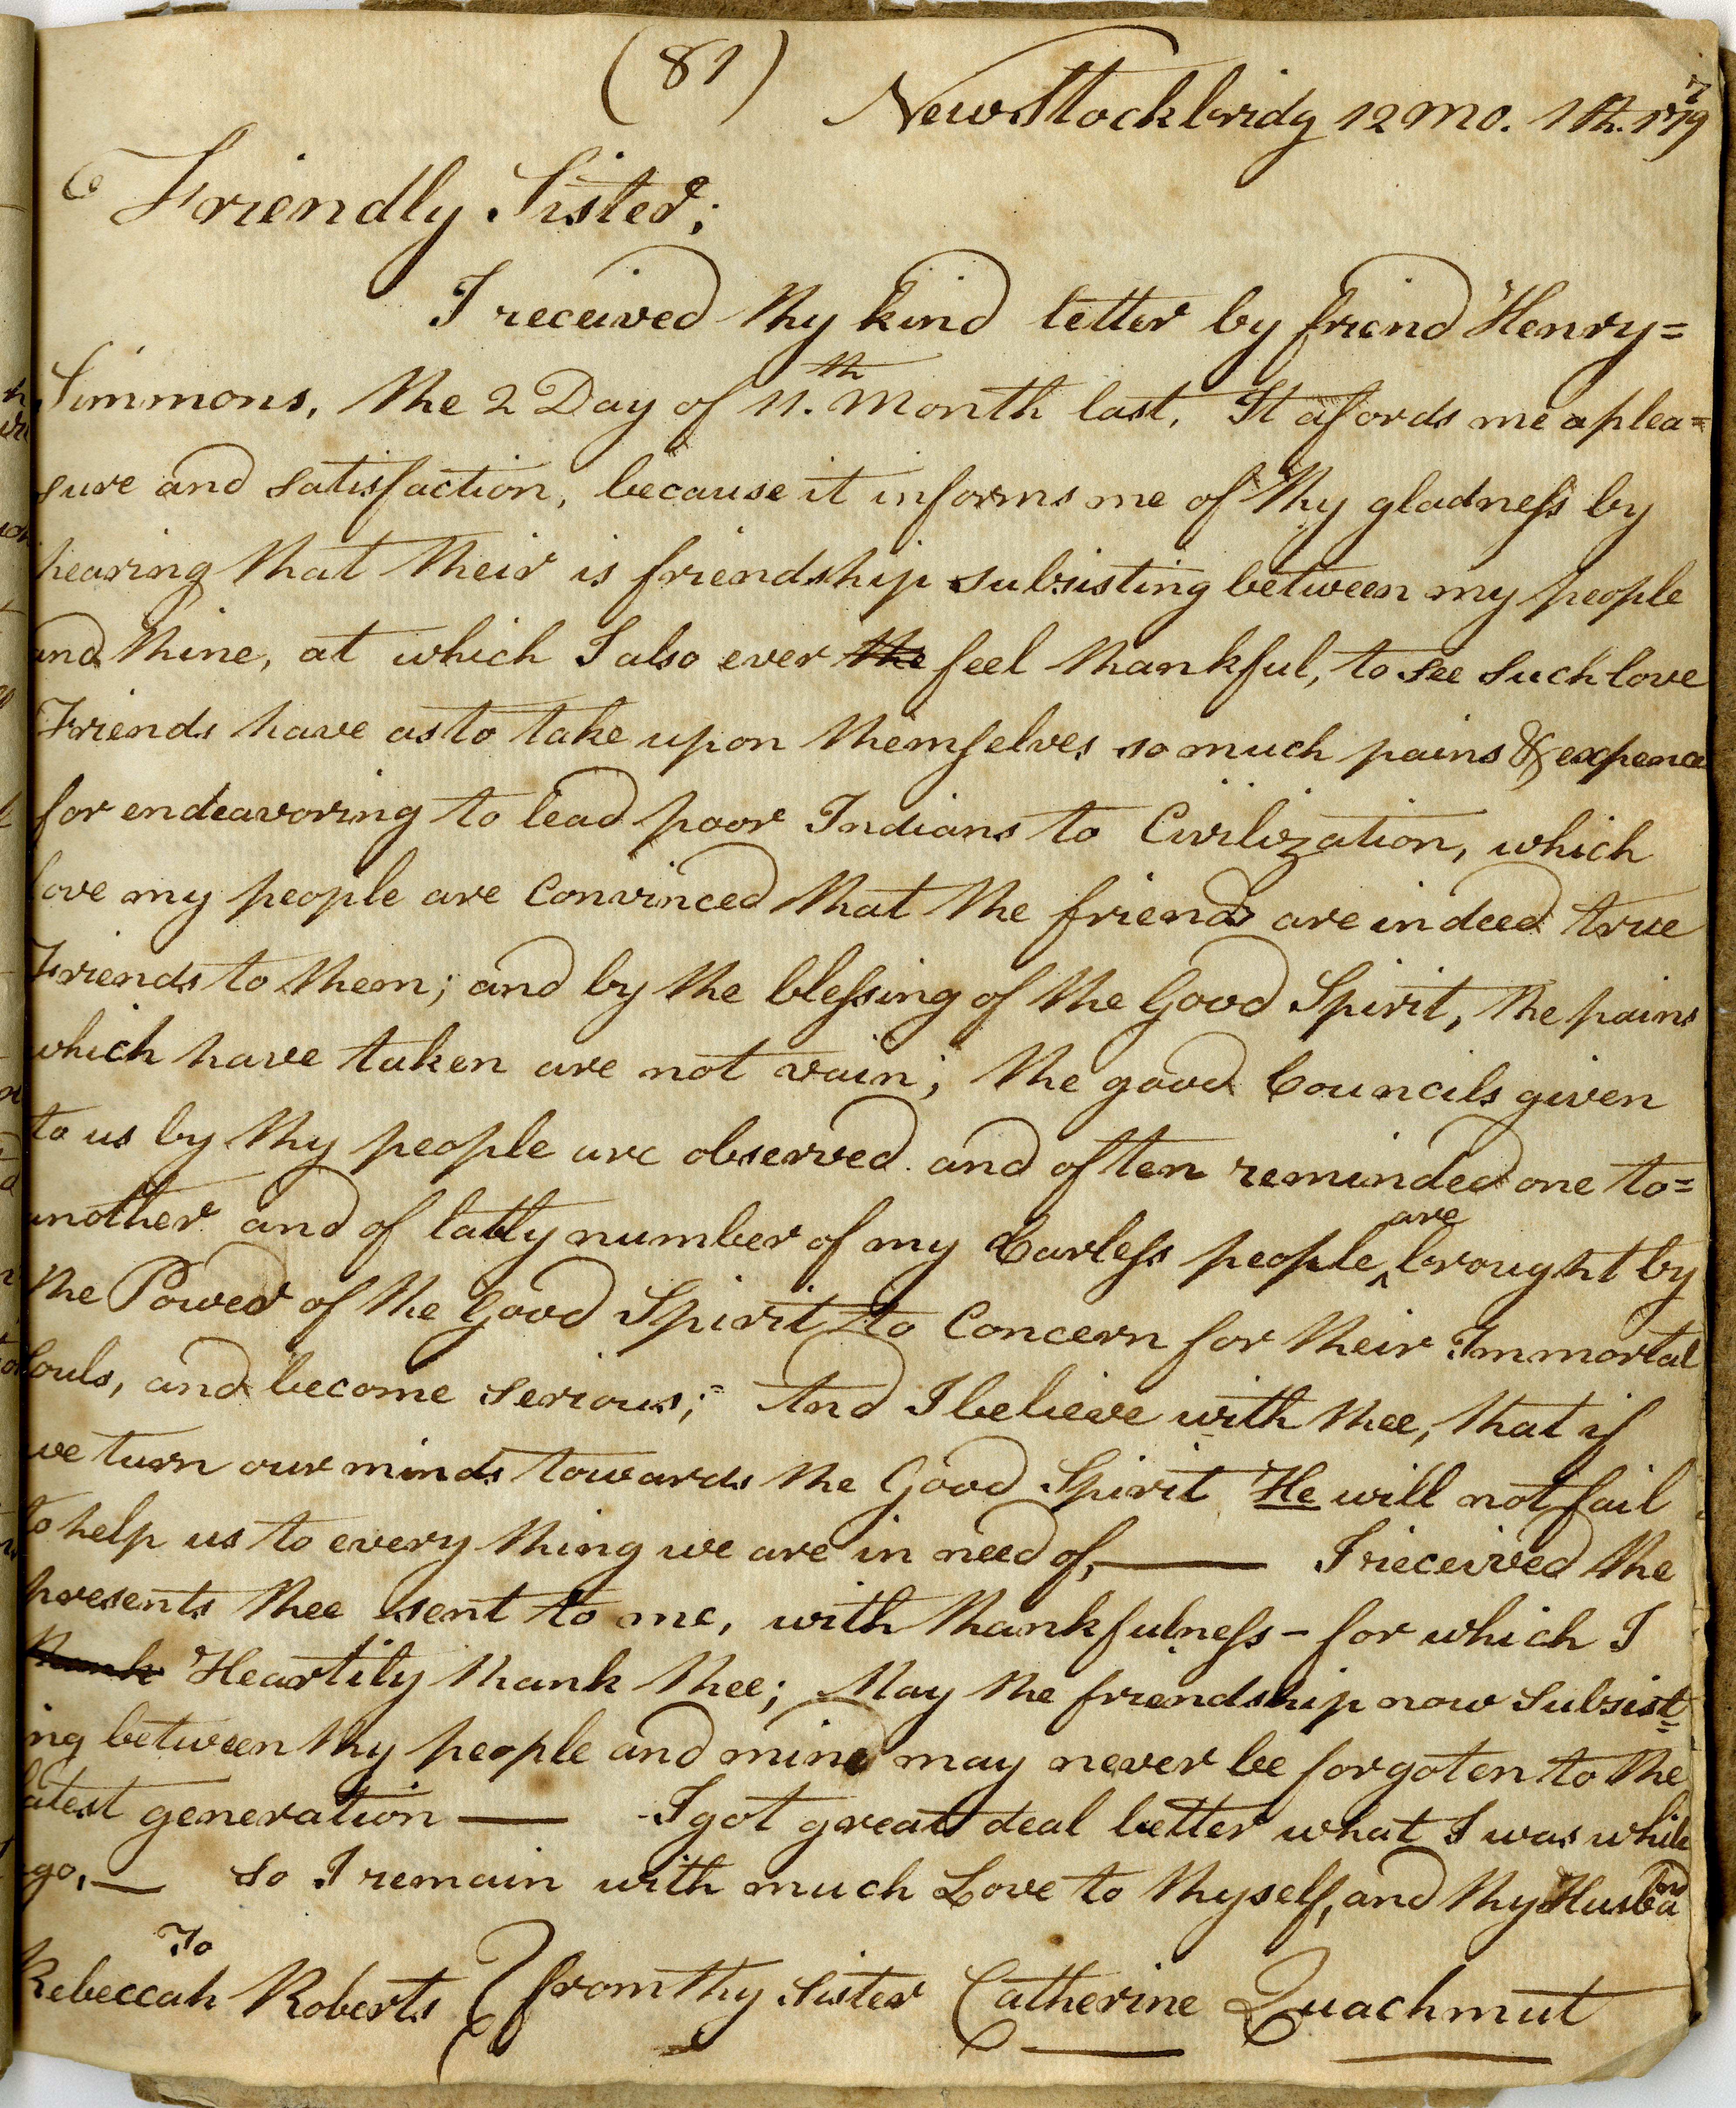 (81)
New Stockbridg 12 mo. 1th. 1797
Friendly Sister;
I received thy kind letter by friend Henry=
Simmons, the 2 Day of 11.th Month last, It afords me a plea=
sure and satisfaction, because it informs me of thy gladness by
hearing that their is friendship subsisting between my people
and thine, at which I also ever the feel thankful, to see such love
Friends have as to take upon themselves so much pains & expence
for endeavoring to lead poor Indians to Civilization, which
love my people are Convinced that the friends are indeed true
Friends to them; and by the blessing of the Good Spirit, the pains
which have taken are not vain; the good Councils given
to us by thy people are observed and often reminded one to=
another and of latly number of my Carless people ^are brought by
the Power of the Good Spirit to Concern for their Immortal
Souls, and become serious;= And I believe with thee, that if
we turn our minds towards the Good Spirit He will not fail
to help us to every thing we are in need of,— I rieceived the
presents thee sent to me, with thankfulness - for which I
thank Heartily thank thee; May the friendship now Subsist=
ing between thy people and mine may never be forgoten to the
latest generation — I got great deal better what I was while
ago,— So I remain with much Love to thyself, and thy Husband
To
Rebeccah Roberts { from thy sister Catherine Quachmut